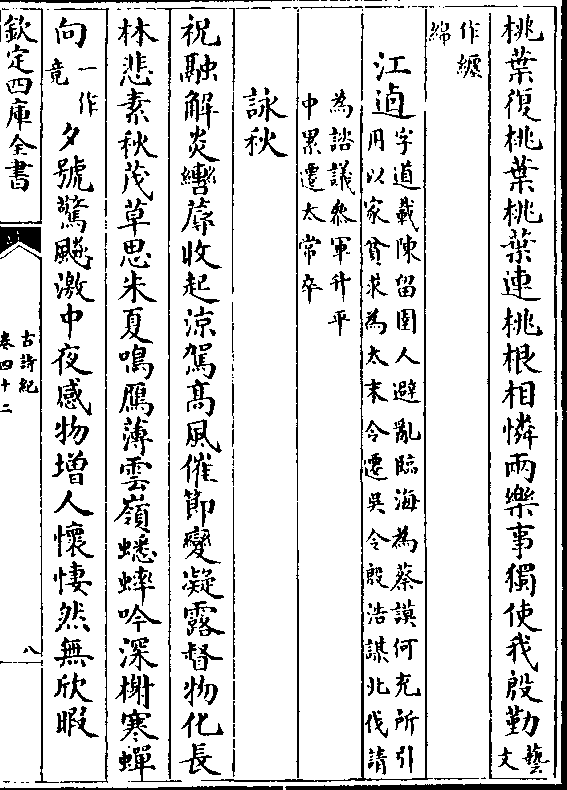 桃葉復桃葉桃葉連桃根相憐兩樂事獨使我殷勤藝文
作纏
綿
江逌字道載陳留圉人避亂臨海為蔡謨何充所引
用以家貧求為太末令遷吳令殷浩謀北伐請
為諮議參軍升平
中累遷太常卒
詠秋
祝融解炎轡蓐收起涼駕髙風催節變凝露督物化長
林悲素秋茂草思朱夏鳴鴈薄雲嶺蟋蟀吟深榭寒蟬
向一作竟夕號驚飈激中夜感物増人懷悽然無欣暇
欽定四庫全書
古詩紀
卷四十二
八